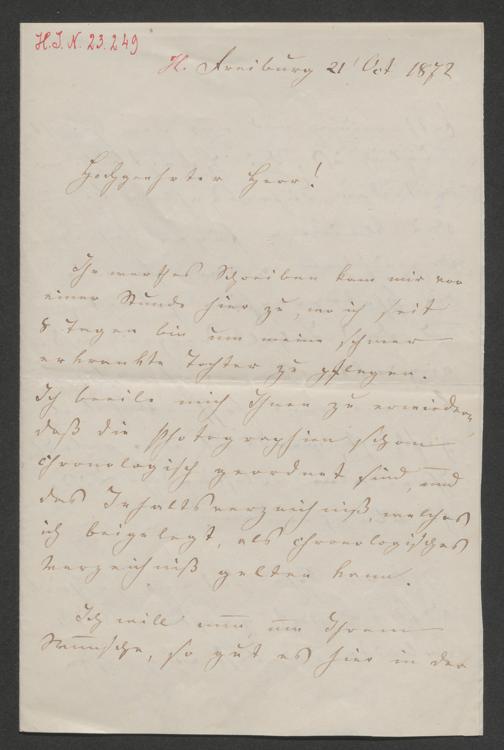 H. I. N. 23.249
H. Freiburg 21 Oct 1872
Hochgeehrter Herr!
Ihr werthes Schreiben kam mir vor
einer Stunde hier zu, wo ich seit
8 Tagen bin um meine schwer
erkrankte Tochter zu pflegen.
Ich beeile mich Ihnen zu erwiedern,
daß die Photographien schon
chronologisch geordnet sind, und
das Inhaltsverzeichniß, welches
ich beigelegt, als chronologisches
Verzeichniß gelten kann.
Ich will nun, um Ihrem
Wunsche, so gut es hier in der